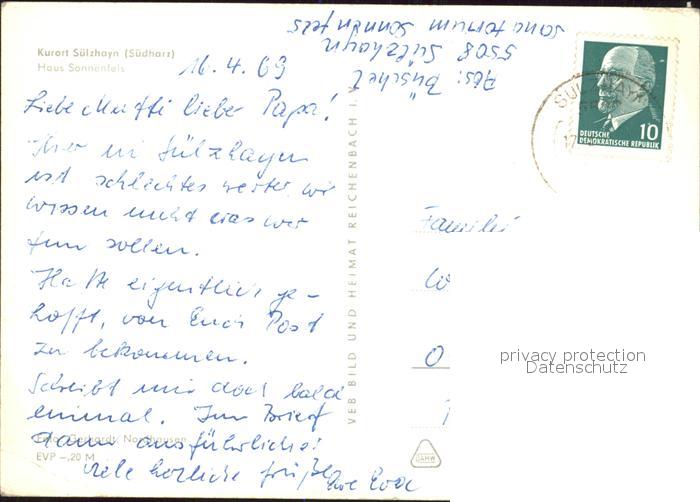 Kurort Sülzhayn (Südharz)
Haus Sonnenfels
16.4.69
Liebe Mutti lieber Papa!
Hier in Sülzhayn
ist schlechtes wetter wir
wissen nicht was wir
tun sollen.
Hatte eigentlich ge-
hofft, von Euch Post
zu bekommen.
Schreibt mir doch bald
einmal. Im Brief
dann ausführlicher
viele herzliche Grüße
Eure Eva
Foto: Gerhardt, Nordhausen
EVP -,20 M
VEB BILD UND HEIMAT REICHENBACH I. V.
Abs: Büschel
5508 Sülzhayn
Sanatorium Sonnenfels
SÜLZHAYN
17
10
DEUTSCHE
DEMOKRATISCHE REPUBLIK
Familie
privacy protection
Datenschutz